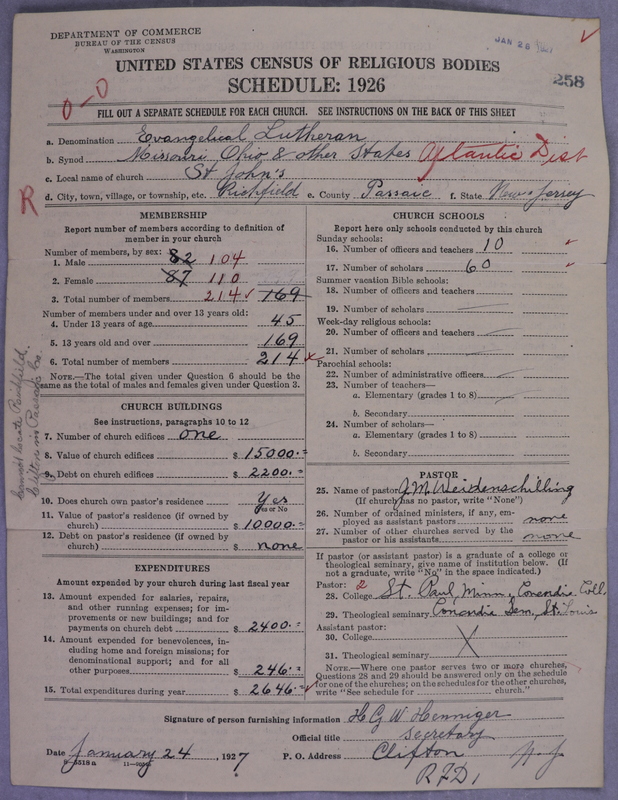 DEPARTMENT OF COMMERCE
BUREAU OF THE CENSUS
WASHINGTON
JAN 28 1927
UNITED STATES CENSUS OF RELIGIOUS BODIES
SCHEDULE: 1926
258
0-0
FILL OUT A SEPARATE SCHEDULE FOR EACH CHURCH. SEE INSTRUCTIONS ON THE BACK OF THIS SHEET
a. Denomination Evangelical Lutheran
b. Synod Missouri, Ohio & other States Atlantic Dist
c. Local name of church St John's
R
d. City, town, village, or township, etc. Richfield e. County Passaic f. State New Jersey
MEMBERSHIP
Report number of members according to definition of member in your church
Number of members, by sex:
1. Male 82 104
2. Female 87 110
3. Total number of members 214 169
Number of members under and over 13 years old:
4. Under 13 years of age 45
5. 13 years old and over 169
6. Total number of members 214 x
NOTE.—The total given under Question 6 should be
same as the total of males and females given under Question 3.
Cannot locate
Clifton in Passaic Co.
CHURCH BUILDINGS
See instructions, paragraphs 10 to 12
7. Number of church edifices one
8. Value of church edifices $ 15000.=
9. Debt on church edifices $ 2200.=
10. Does church own pastor's residence Yes
Yes or No
11. Value of pastor's residence (if owned by
church) $ 10000.=
12. Debt on pastor's residence (if owned by
church) $ none
EXPENDITURES
Amount expended by your church during last fiscal year
13. Amount expended for salaries, repairs,
and other running expenses; for im-
provements or new buildings; and for
payments on church debt $ 2400.=
14. Amount expended for benevolences, in-
cluding home and foreign missions; for
denominational support; and for all
other purposes $ 246.=
15. Total expenditures during year $ 2646.=
CHURCH SCHOOLS
Report here only schools conducted by this church
Sunday schools:
16. Number of officers and teachers 10
17. Number of scholars 60
Summer vacation Bible schools:
18. Number of officers and teachers
19. Number of scholars
Week-day religious schools:
20. Number of officers and teachers
21. Number of scholars
Parochial schools:
22. Number of administrative officers
23. Number of teachers—
a. Elementary (grades 1 to 8)
b. Secondary
24. Number of scholars—
a. Elementary (grades 1 to 8)
b. Secondary
PASTOR
25. Name of pastor J. M. Weidenschilling
(If church has no pastor, write "None")
26. Number of ordained ministers, if any, em-
ployed as assistant pastors none
27. Number of other churches served by the
pastor or his assistants none
If pastor (or assistant pastor) is a graduate of a college or
theological seminary, give name of institution below. (If
not a graduate, write "No" in the space indicated.)
Pastor: 2
28. College St. Paul, Minn., Concordia Coll.
29. Theological seminary Concordia Sem., St. Louis
Assistant pastor:
30. College X
31. Theological seminary
NOTE.—Where one pastor serves two or more churches,
Questions 28 and 29 should be answered only on the schedule
for one of the churches; on the schedules for the other churches,
write "See schedule for church."
Signature of person furnishing information H G W Henniger
Official title Secretary
Date January 24, 1927 P. O. Address Clifton N. J
11—
R F D 1